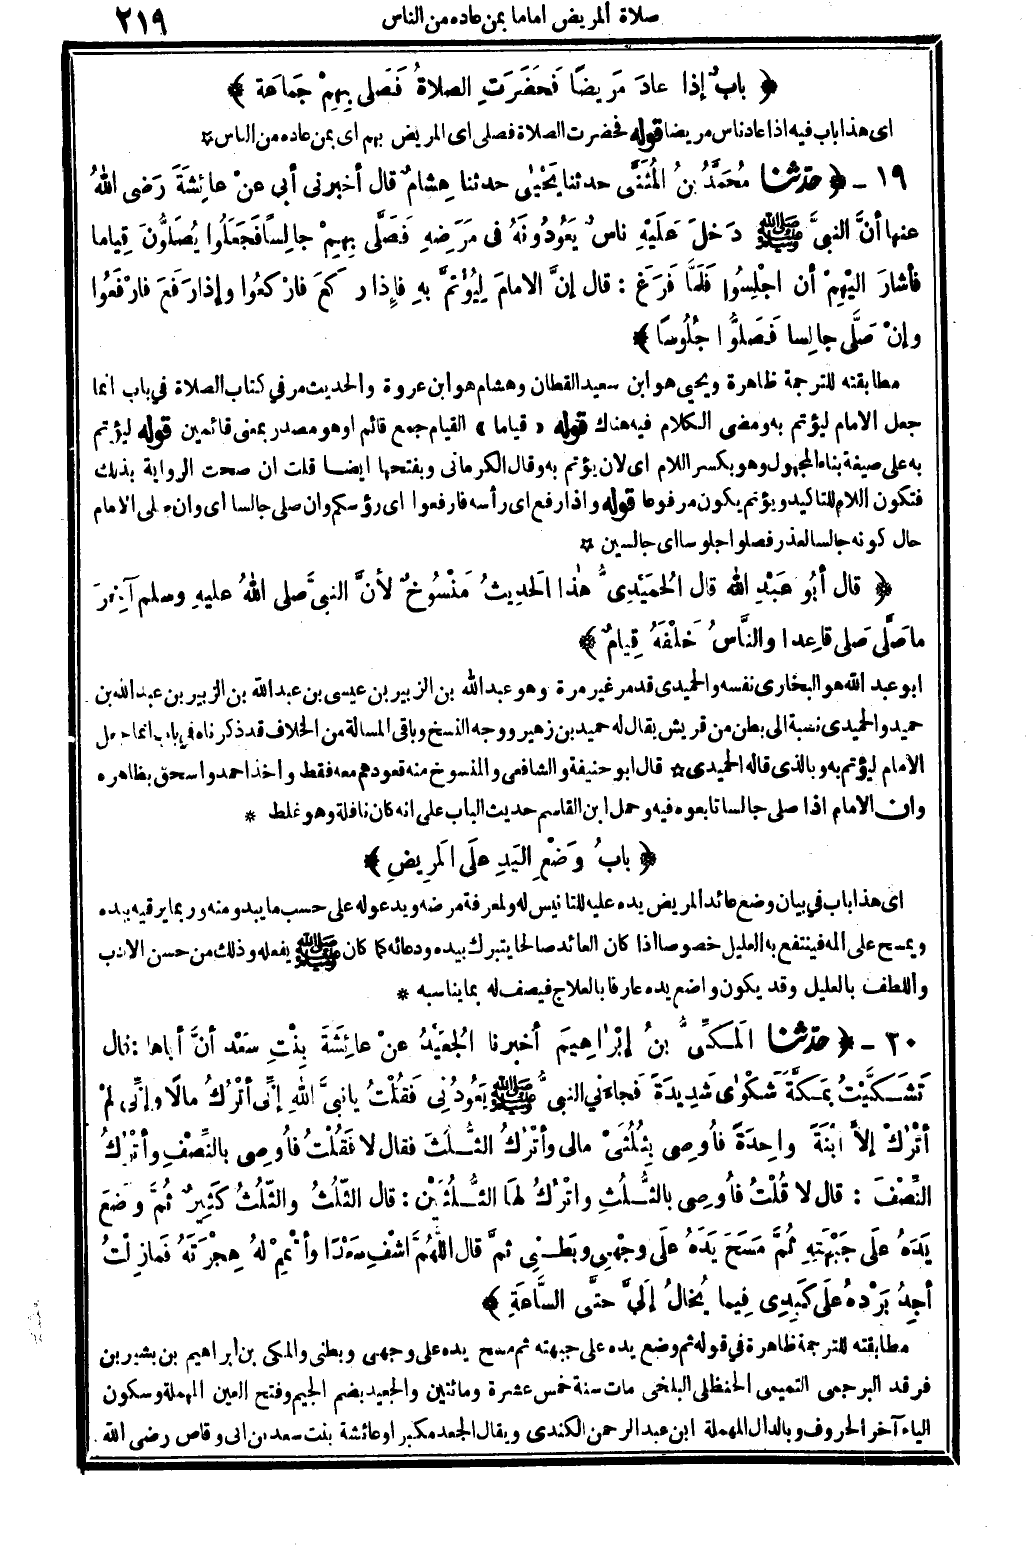 صلاة المريض اماما بمن عاده من الناس ٢١٩
﴿ بابٌ إذا عادَ مَريضًا فَحَضَرَتِ الصلاةُ فَصَلى بِهِمْ جَمَاعة ﴾
اى هذا باب فيه اذا عاد ناس مريضا قوله فحضرت الصلاة فصلى اى المريض بهم اى بمن عاده من الناس ☆
١٩ - ﴿ حدثنا محمَّدُ بنُ المُثَنَّى حدثنا يَحْيَى حدثنا هِشامٌ قال أخبرنى أبي عنْ عائِشةَ رَضى اللهُ
عنها أنَّ النبيَّ ﷺ دَخلَ عَلَيْهِ ناسٌ يَعُودُونَهُ فى مَرَضِهِ فَصَلَّى بِهِمْ جالِسًا فَجَعَلُوا يُصَلُّونَ قِياما
فأشارَ اليْهِمْ أن اجْلِسُوا فَلَمَّا فَرَغَ : قال إنَّ الامامَ لِيُؤْتمَّ بهِ فإِذا رَكَعَ فارْكعُوا وإذا رَفعَ فارْفَعُوا
وإنْ صَلَّى جالِسا فَصَلُّوا جُلُوسًا ﴾
مطابقته للترجمة ظاهرة ويحيى هو ابن سعيد القطان وهشام هو ابن عروة والحديث مر فى كتاب الصلاة فى باب انما
جعل الامام ليؤتم به ومضى الكلام فيه هناك قوله « قياما » القيام جمع قائم او هو مصدر بمعنى قائمين قوله ليؤتم
به على صيغة بناء المجهول وهو بكسر اللام اى لان يؤتم به وقال الكرمانى وبفتحها ايضا قلت ان صحت الرواية بذلك
فتكون اللام للتاكيد ويؤتم يكون مرفوعا قوله واذا رفع اى رأسه فارفعوا اى رؤسكم وان صلى جالسا اى وان صلى الامام
حال كونه جالسا لعذر فصلوا جلوسا اى جالسين ☆
﴿ قال أبُو عَبْدِ الله قال الحُمَيْدِىُّ هٰذا الحَديثُ مَنْسُوخٌ لأنَّ النبيَّ صلى اللهُ عليهِ وسلم آخِرَ
ما صَلَّى صلى قاعِدا والنَّاسُ خَلْفَهُ قِيامٌ ﴾
ابو عبد الله هو البخارى نفسه والحميدى قد مر غير مرة وهو عبد الله بن الزبير بن عيسى بن عبد الله بن الزبير بن عبد الله بن
حميد والحميدى نسبة الى بطن من قريش يقال له حميد بن زهير ووجه النسخ وباقى المسالة من الخلاف قد ذكرناه فى باب انما جعل
الامام ليؤتم به وبالذى قاله الحميدى ☆ قال ابو حنيفة والشافعى والمنسوخ منه قعودهم معه فقط واخذ احمد واسحق بظاهره
وان الامام اذا صلى جالسا تابعوه فيه وحمل ابن القاسم حديث الباب على انه كان نافلة وهو غلط *
﴿ بابُ وَضْعِ اليَدِ عَلَى المَرِيضِ ﴾
اى هذا باب فى بيان وضع عائد المريض يده عليه للتانيس له ولمعرفة مرضه ويدعو له على حسب ما يبدو منه وربما يرقيه بيده
ويمسح على المه فينتفع به العليل خصوصا اذا كان العائد صالحا يتبرك بيده ودعائه كما كان ﷺ يفعله وذلك من حسن الادب
واللطف بالعليل وقد يكون واضع يده عارفا بالعلاج فيصف له بما يناسبه *
٢٠ - ﴿ حدثنا المَكِّىُّ بنُ إبْرَاهِيمَ أخبرنا الجُعَيْدُ عنْ عائِشَةَ بِنْتِ سَعْد أنَّ أباها : قال
تَشَكَّيْتُ بِمَكَّةَ شَكْوَى شَدِيدَةً فَجاءَنى النبىُّ ﷺ يَعُودُنِى فَقُلْتُ يا نبيَّ اللهِ إنِّى أتْرُكُ مالًا وإنِّى لمْ
أتْرُكْ إلاَّ ابْنَةً واحِدَةً فأُوصِى بِثُلُثَىْ مالى وأتْرُكُ الثُّلُثَ فقال لا فَقُلْتُ فأُوصِى بالنِّصْفِ وأتْرُكُ
النِّصْفَ : قال لا قُلْتُ فأُوصِى بالثُّلُثِ واتْرُكُ لها الثُّلُثَيْنِ : قال الثُّلُثُ والثُّلُثُ كَثِيرٌ ثُمَّ وضَعَ
يَدَهُ علَى جَبْهَتِهِ ثُمَّ مَسَحَ يَدَهُ علَى وجْهِى وبَطْنِى ثمَّ قال اللّهُمَّ اشْفِ سَعْدًا وأتْمِمْ لهُ هِجْرَتَهُ فَمازِلْتُ
أجِدُ بَرْدَهُ علَى كَبِدِى فِيما يُخالُ إلَىَّ حتَّى السَّاعَةِ ﴾
مطابقته للترجمة ظاهرة فى قوله ثم وضع يده على جبهته ثم مسح يده على وجهى وبطنى والمكى بن ابراهيم بن بشير بن
فرقد البرجمى التميمى الحنظلى البلخى مات سنة خمس عشرة ومائتين والجعيد بضم الجيم وفتح العين المهملة وسكون
الياء آخر الحروف وبالدال المهملة ابن عبد الرحمن الكندى ويقال الجعد مكبرا وعائشة بنت سعد بن ابى وقاص رضى الله